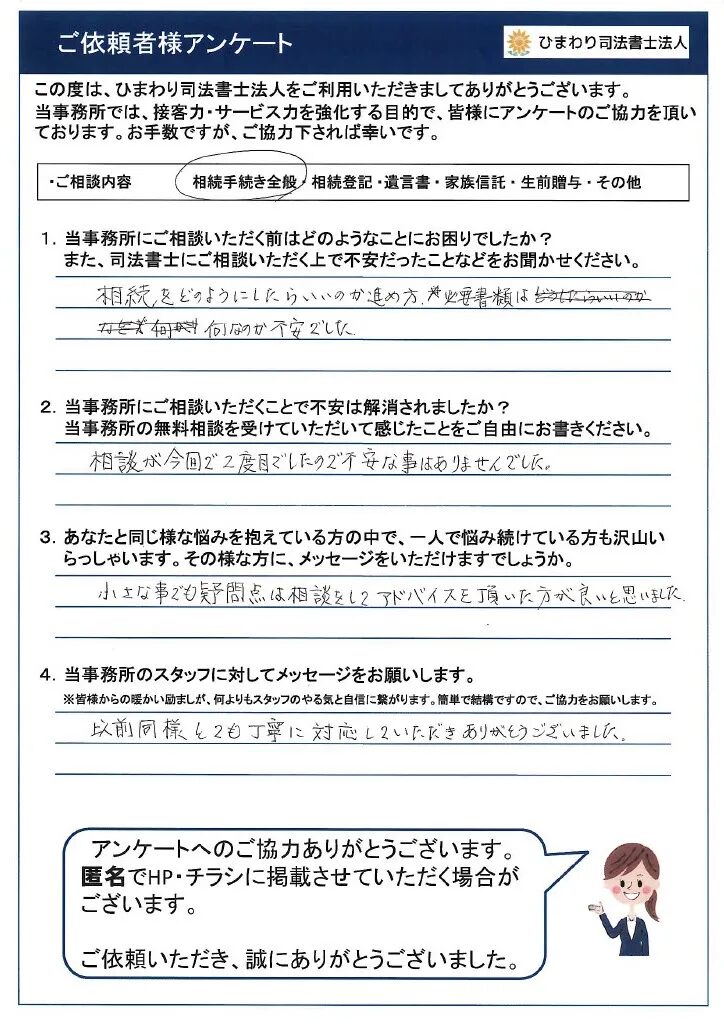 ご依頼者様アンケート
ひまわり司法書士法人
この度は、ひまわり司法書士法人をご利用いただきましてありがとうございます。
当事務所では、接客力・サービス力を強化する目的で、皆様にアンケートのご協力を頂い
ております。お手数ですが、ご協力下されば幸いです。
・ご相談内容 相続手続き全般・相続登記・遺言書・家族信託・生前贈与・その他
1. 当事務所にご相談いただく前はどのようなことにお困りでしたか？
また、司法書士にご相談いただく上で不安だったことなどをお聞かせください。
相続をどのようにしたらいいのか進め方、必要書類は
何なのか不安でした
2. 当事務所にご相談いただくことで不安は解消されましたか？
当事務所の無料相談を受けていただいて感じたことをご自由にお書きください。
相談が今回で2度目でしたので不安な事はありませんでした。
3. あなたと同じ様な悩みを抱えている方の中で、一人で悩み続けている方も沢山い
らっしゃいます。その様な方に、メッセージをいただけますでしょうか。
小さな事でも疑問点は相談をしてアドバイスを頂いた方が良いと思いました
4. 当事務所のスタッフに対してメッセージをお願いします。
※皆様からの暖かい励ましが、何よりもスタッフのやる気と自信に繋がります。簡単で結構ですので、ご協力をお願いします。
以前同様とても丁寧に対応していただきありがとうございました。
アンケートへのご協力ありがとうございます。
匿名でHP・チラシに掲載させていただく場合が
ございます。
ご依頼いただき、誠にありがとうございました。